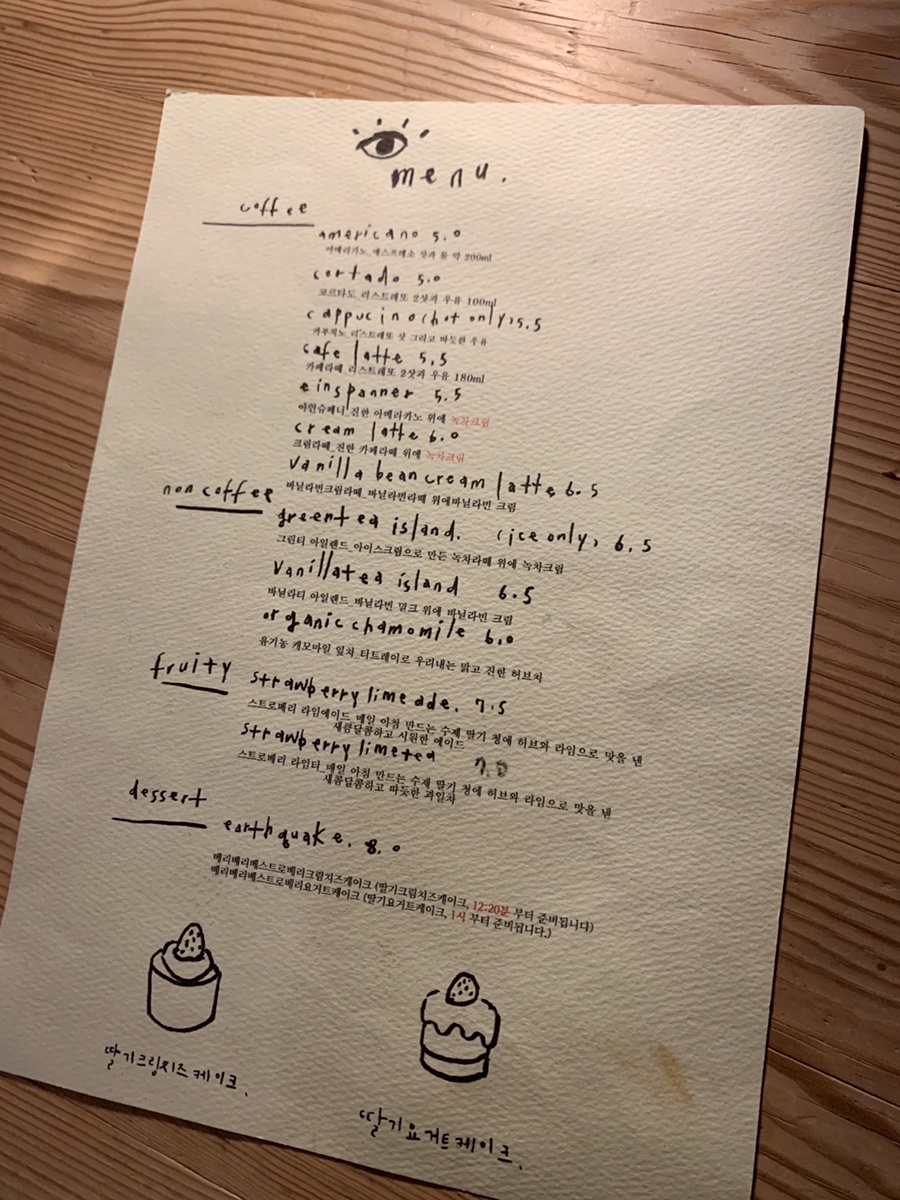 menu.
coffee
americano 5.0
아메리카노_에스프레소 샷과 물 약 200ml
cortado 5.0
코르타도_리스트레또 2샷과 우유 100ml
cappucino (hot only) 5.5
카푸치노_리스트레또 샷 그리고 따듯한 우유
cafe latte 5.5
카페라떼_리스트레또 2샷과 우유 180ml
einspanner 5.5
아인슈페너_진한 아메리카노 위에 녹차크림
cream latte 6.0
크림라떼_진한 카페라떼 위에 녹차크림
vanilla bean cream latte 6.5
바닐라빈크림라떼_바닐라빈라떼 위에바닐라빈 크림
non coffee
greentea island. (ice only) 6.5
그린티 아일랜드_아이스크림으로 만든 녹차라떼 위에 녹차크림
vanillatea island 6.5
바닐라티 아일랜드_바닐라빈 밀크 위에 바닐라빈 크림
organic chamomile 6.0
유기농 캐모마일 잎차_티트레이로 우려내는 맑고 진한 허브차
fruity
strawberry lime ade. 7.5
스트로베리 라임에이드_매일 아침 만드는 수제 딸기 청에 허브와 라임으로 맛을 낸
새콤달콤하고 시원한 에이드
strawberry limetea 7.0
스트로베리 라임티_매일 아침 만드는 수제 딸기 청에 허브와 라임으로 맛을 낸
새콤달콤하고 따듯한 과일차
dessert
earthquake. 8.0
베리베리베스트로베리크림치즈케이크 (딸기크림치즈케이크, 12:20분 부터 준비됩니다)
베리베리베스트로베리요거트케이크 (딸기요거트케이크, 1시 부터 준비됩니다.)
딸기크림치즈케이크.
딸기요거트케이크.